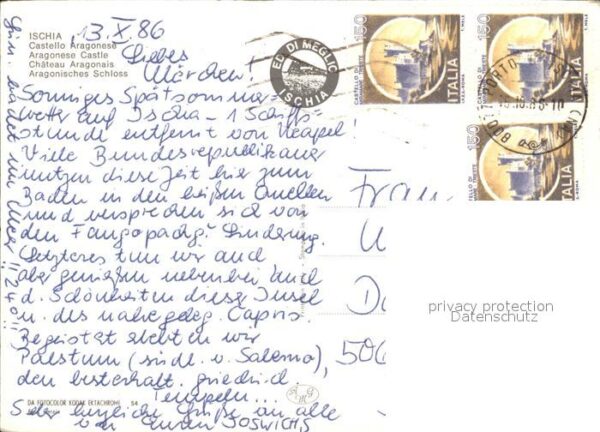 13.X.86
ISCHIA
Castello Aragonese
Aragonese Castle
Château Aragonais
Aragonisches Schloss
Liebes
Märchen!
Sonniges Spätsommer=
wetter auf Ischia - 1 Schiffs=
stunde entfernt von Neapel!
Viele Bundesrepublikaner
nutzen diese Zeit hier zum
Baden in den heißen Quellen
und versprechen sich von
den Fangopackg. Linderung.
Letzteres tun wir auch
aber genießen nebenbei auch
d. Schönheiten dieser Insel
u. des nahegeleg. Capris.
Begeistert sind wir
Paestum (südl. v. Salerno),
den besterhalt. griech.
Tempeln...
Sehr herzliche Grüße an alle
von Euren JOSWICHS
badet im Meer!! 24°!!!
ED. DI MEGLIO
ISCHIA
150
CASTELLO DI
ITALIA
150
ITALIA
150
CASTELLO DI
ITALIA
Frau
U
D
506
privacy protection
Datenschutz
DA FOTOCOLOR KODAK EKTACHROME 54